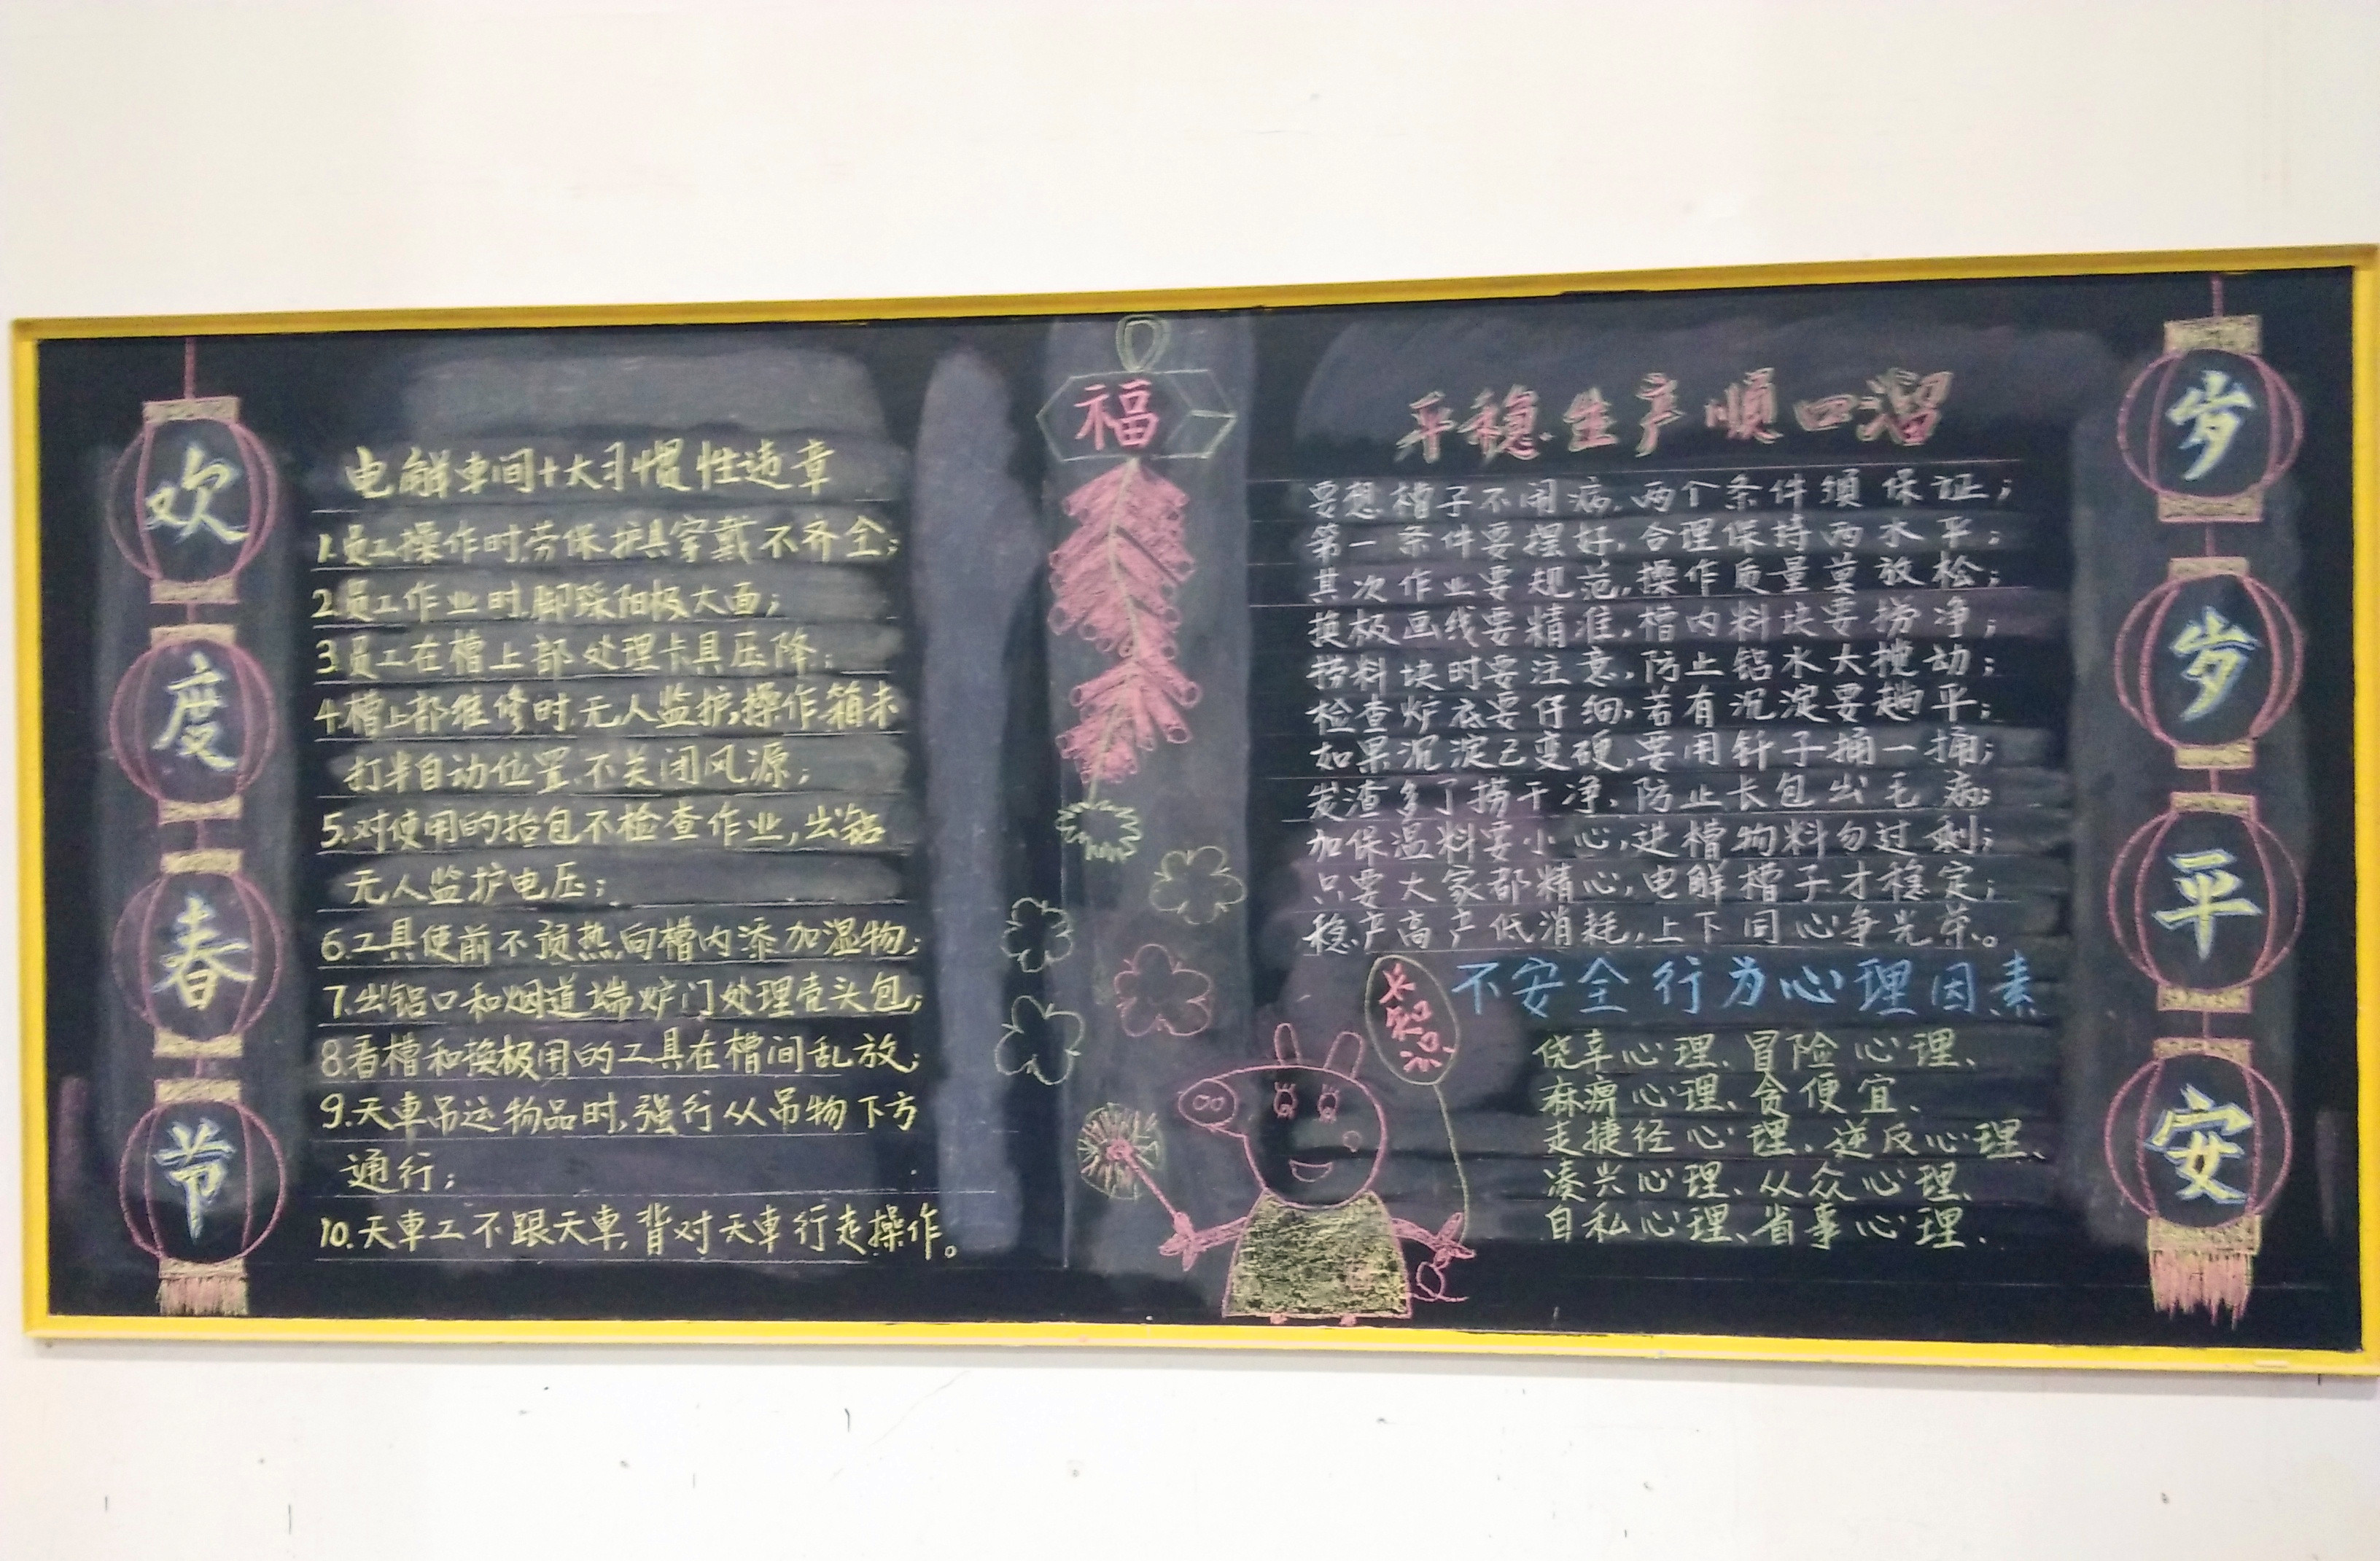 欢度春节
电解车间十大习惯性违章
1.员工操作时劳保护具穿戴不齐全;
2.员工作业时,脚踩阳极大面;
3.员工在槽上部处理卡具压降;
4.槽上部维修时,无人监护,操作箱未
打半自动位置,不关闭风源;
5.对使用的抬包不检查作业,出铝
无人监护电压;
6.工具使前不预热,向槽内添加湿物;
7.出铝口和烟道端炉门处理壳头包;
8.看槽和换极用的工具在槽间乱放;
9.天车吊运物品时,强行从吊物下方
通行;
10.天车工不跟天车,背对天车行走操作。
福
平稳生产顺口溜
要想槽子不闹病,两个条件须保证;
第一条件要摆好,合理保持两水平;
其次作业要规范,操作质量莫放松;
换极画线要精准,槽内料块要捞净;
捞料块时要注意,防止铝水大搅动;
检查炉底要仔细,若有沉淀要趟平;
如果沉淀已变硬,要用钎子捅一捅;
炭渣多了捞干净,防止长包出毛病;
加保温料要小心,进槽物料勿过剩;
只要大家都精心,电解槽子才稳定;
稳产高产低消耗,上下同心争光荣。
长知识
不安全行为心理因素
侥幸心理、冒险心理、
麻痹心理、贪便宜、
走捷径心理、逆反心理、
凑兴心理、从众心理、
自私心理、省事心理、
岁岁平安